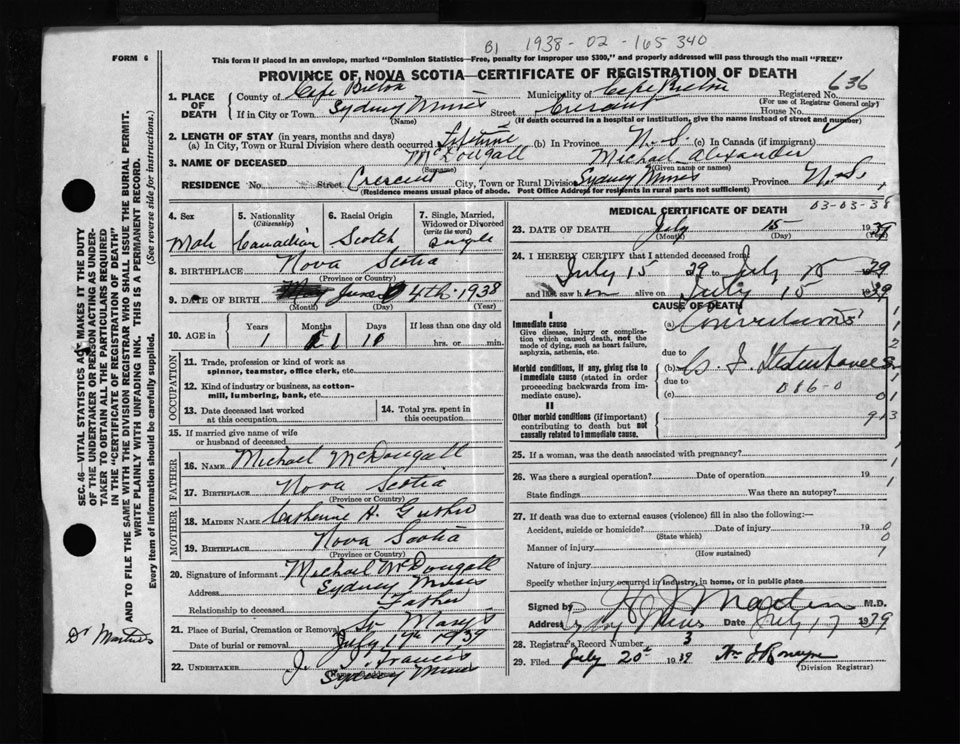 B1 1938-02-165340
FORM 6
This form if placed in an envelope, marked "Dominion Statistics—Free, penalty for improper use $300," and properly addressed will pass through the mail "FREE"
PROVINCE OF NOVA SCOTIA—CERTIFICATE OF REGISTRATION OF DEATH
636
1. PLACE OF DEATH County of Cape Breton Municipality of Cape Breton Registered No.
(For use of Registrar General only)
If in City or Town Sydney Mines Street Crescent House No.
(Name) (If death occurred in a hospital or institution, give the name instead of street and number)
2. LENGTH OF STAY (in years, months and days)
(a) In City, Town or Rural Division where death occurred Lifetime (b) In Province N.S. (c) In Canada (if immigrant)
3. NAME OF DECEASED McDougall Michael Alexander
(Surname) (Given name or names)
RESIDENCE No. Street Crescent City, Town or Rural Division Sydney Mines Province N.S.
(Residence means usual place of abode. Post Office Address for residents in rural parts not sufficient)
4. Sex Male
5. Nationality (Citizenship) Canadian
6. Racial Origin Scotch
7. Single, Married, Widowed or Divorced (write the word) Single
8. BIRTHPLACE Nova Scotia
(Province or Country)
9. DATE OF BIRTH June 4th 1938
(Month) (Day) (Year)
10. AGE in Years Months Days If less than one day old
1 1 hrs. or min.
OCCUPATION
11. Trade, profession or kind of work as spinner, teamster, office clerk, etc.
12. Kind of industry or business, as cotton-mill, lumbering, bank, etc.
13. Date deceased last worked at this occupation
14. Total yrs. spent in this occupation
15. If married give name of wife or husband of deceased
FATHER
16. NAME Michael McDougall
17. BIRTHPLACE Nova Scotia
(Province or Country)
MOTHER
18. MAIDEN NAME Catherine H.
19. BIRTHPLACE Nova Scotia
(Province or Country)
20. Signature of informant Michael McDougall
Address Sydney Mines
Relationship to deceased Father
21. Place of Burial, Cremation or Removal St Marys
Date of burial or removal July 17th 1939
22. UNDERTAKER J. J. Francis
Sydney Mines
MEDICAL CERTIFICATE OF DEATH 03-03-38
23. DATE OF DEATH July 15 1939
(Month) (Day)
24. I HEREBY CERTIFY that I attended deceased from
July 15 39 to July 15 1939
and last saw him alive on July 15 1939
CAUSE OF DEATH
I
Immediate cause
Give disease, injury or complication which caused death, not the mode of dying, such as heart failure, asphyxia, asthenia, etc.
(a) Convulsions
due to
Morbid conditions, if any, giving rise to immediate cause (stated in order proceeding backwards from immediate).
(b)
due to
086-0
(c)
II
Other morbid conditions (if important) contributing to death but not causally related to immediate cause.
25. If a woman, was the death associated with pregnancy?
26. Was there a surgical operation? Date of operation 19
State findings Was there an autopsy?
27. If death was due to external causes (violence) fill in also the following:—
Accident, suicide or homicide? Date of injury 19
(State which)
Manner of injury
(How sustained)
Nature of injury
Specify whether injury occurred in industry, in home, or in public place
Signed by Martin M.D.
Address Syd Mines Date July 17 1939
28. Registrar's Record Number 3
29. Filed July 20th 1939
(Division Registrar)
SEC. 46—VITAL STATISTICS ACT MAKES IT THE DUTY
OF THE UNDERTAKER OR PERSON ACTING AS UNDER-
TAKER TO OBTAIN ALL THE PARTICULARS REQUIRED
IN THE "CERTIFICATE OF REGISTRATION OF DEATH"
AND TO FILE THE SAME WITH THE DIVISION REGISTRAR WHO SHALL ISSUE THE BURIAL PERMIT.
WRITE PLAINLY WITH UNFADING INK. THIS IS A PERMANENT RECORD.
Every item of information should be carefully supplied. (See reverse side for instructions.)
Dr